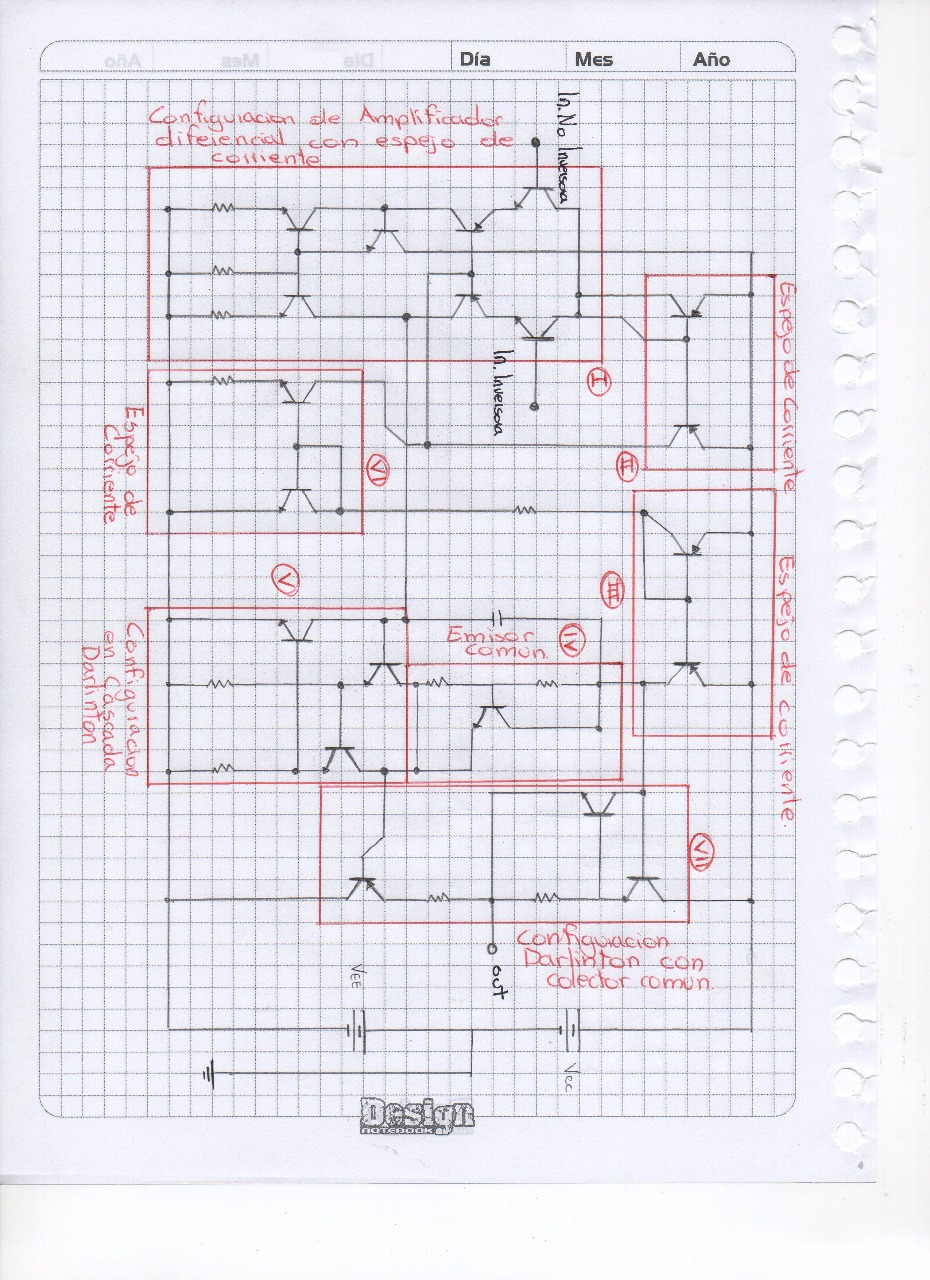 Día Mes Año
Configuracion de Amplificador
diferencial con espejo de
corriente
In. No Inversora
In. Inversora
I
Espejo de Corriente
II
Espejo de corriente.
III
Emisor
comun.
IV
V
Configuracion
en Cascada
Darlinton
VI
Espejo de
Corriente
VII
Configuracion
Darlinton con
colector comun.
out
VEE
Vcc
Design
NOTEBOOK